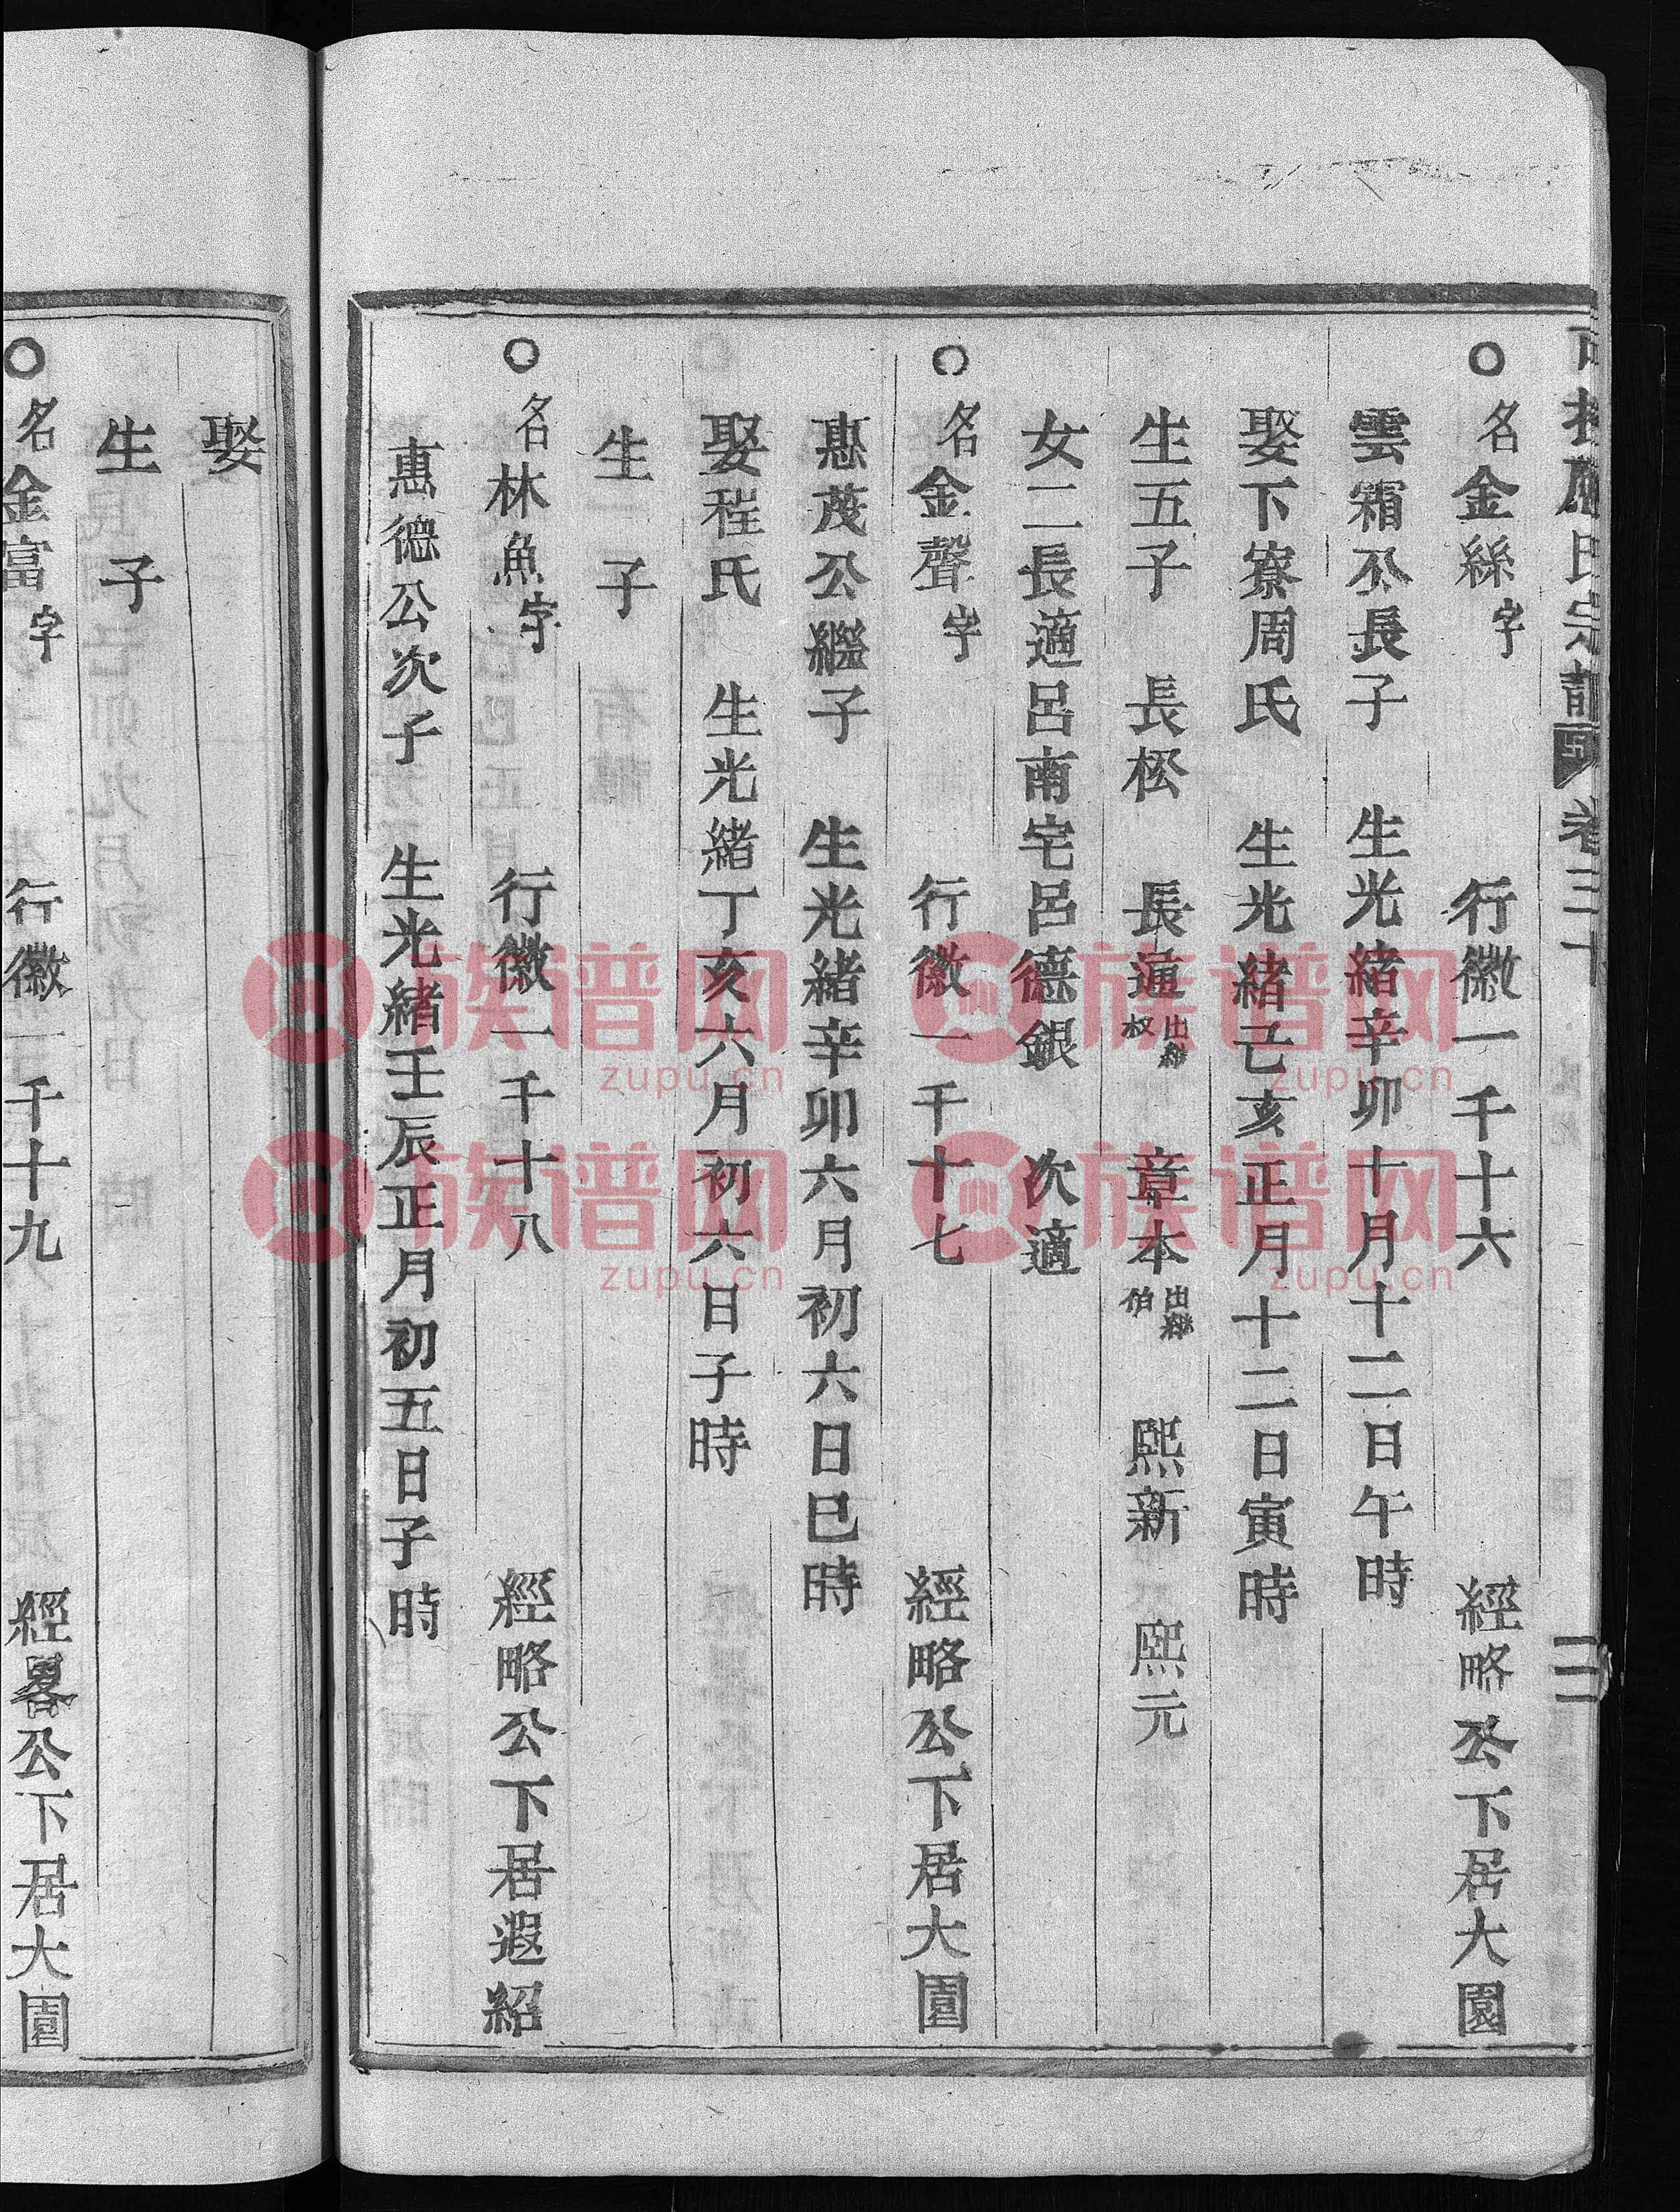 氏宗譜 卷三十 二
○名金絲字 行徽一千十六 經略公下居大園
雲霜公長子 生光緒辛卯十月十二日午時
娶下寮周氏 生光緒己亥正月十二日寅時
生五子 長松 長通出繼叔 章本出繼伯 熙新 熙元
女二長適呂南宅呂德銀 次適
○名金聲字 行徽一千十七 經略公下居大園
惠茂公繼子 生光緒辛卯六月初六日巳時
娶程氏 生光緒丁亥六月初六日子時
生 子
○名林魚字 行徽一千十八 經略公下居遐紹
惠德公次子 生光緒壬辰正月初五日子時
娶
生 子
○名金富字 行徽一千十九 經畧公下居大園
族谱网
zupu.cn
族谱网
zupu.cn
族谱网
zupu.cn
族谱网
zupu.cn